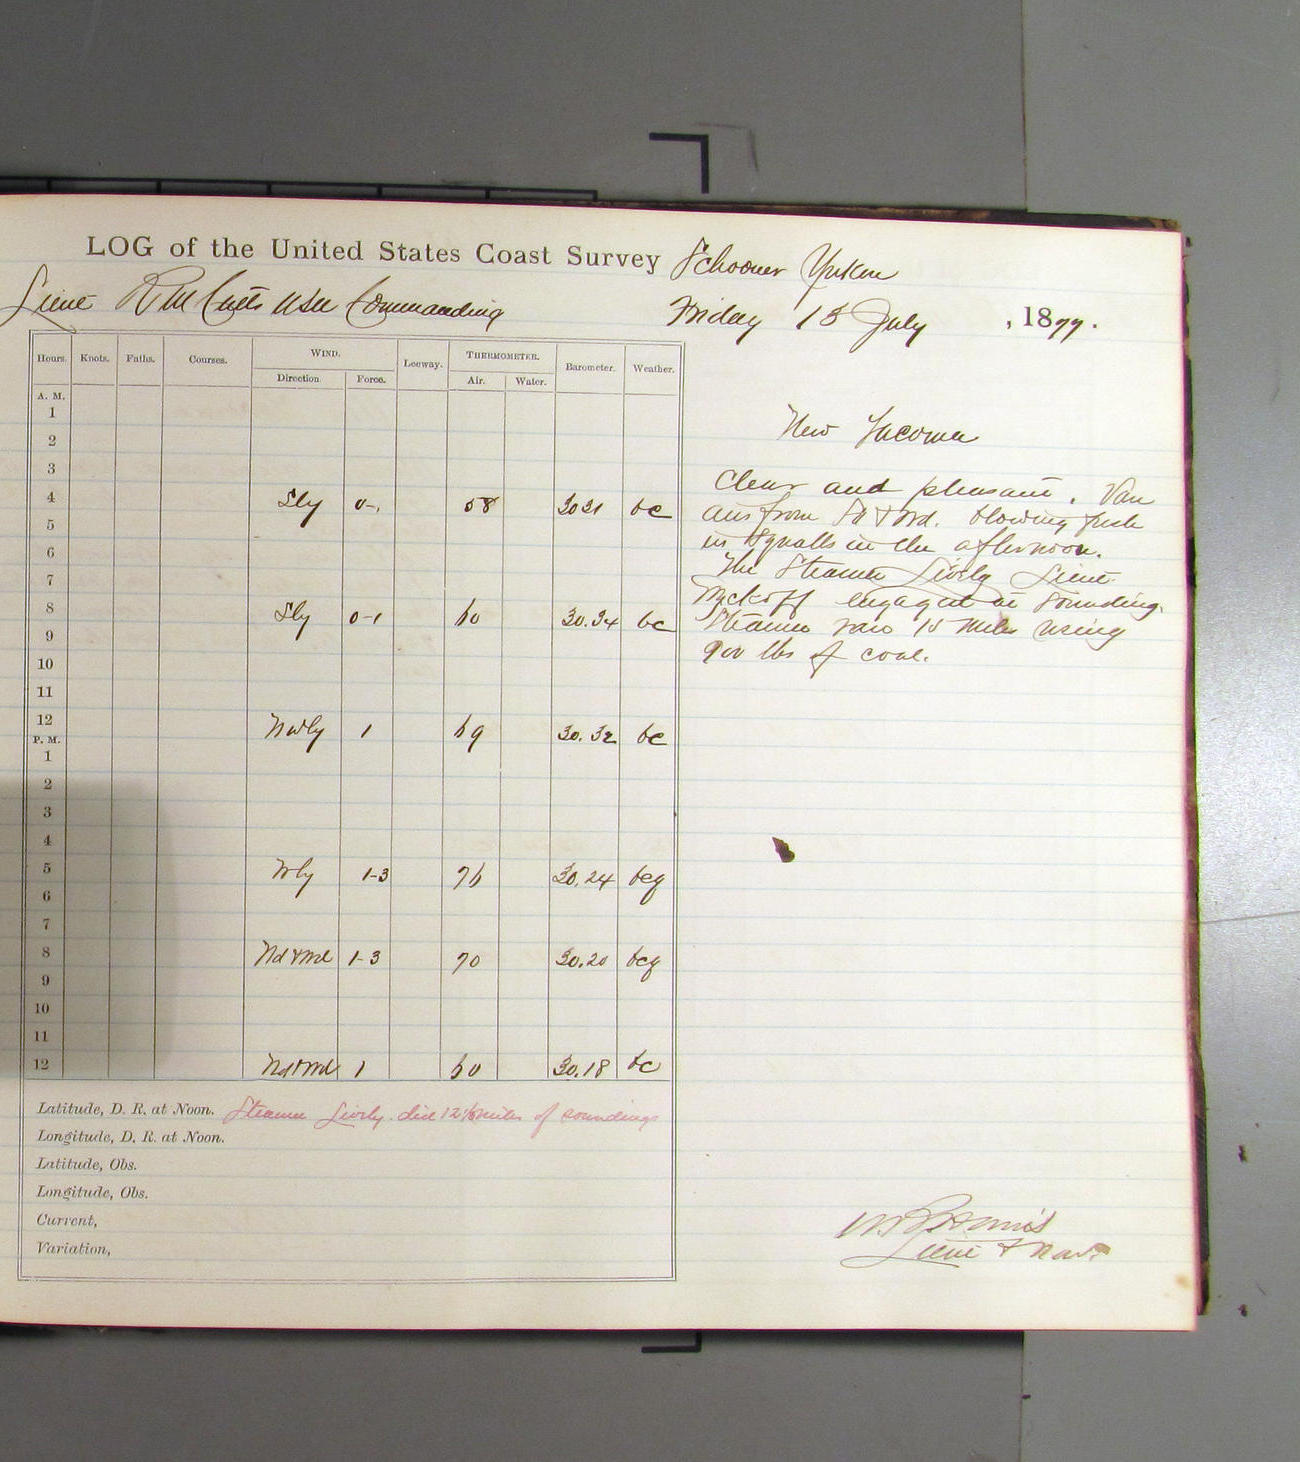 LOG of the United States Coast Survey Schooner Yukon
Lieut R M Cutts USN Commanding Friday 13 July , 1877.
Hours. Knots. Faths. Courses. WIND. Leeway. THERMOMETER. Barometer. Weather.
Direction Force. Air. Water.
A. M.
1
2
3
4 Sly 0-1 58 30 31 bc
5
6
7
8 Sly 0-1 60 30.34 bc
9
10
11
12 Nwly 1 69 30.32 bc
P. M.
1
2
3
4
5 Wly 1-3 76 30.24 bcq
6
7
8 Nd & Wd 1-3 70 30.20 bcq
9
10
11
12 Nd & Wd 1 60 30.18 bc
New Tacoma
Clear and pleasant. Var
airs from Sd & Wd. blowing fresh
in squalls in the afternoon.
The Steamer Lively Lieut
Wyckoff engaged in sounding.
Steamer ran 15 miles using
900 lbs of coal.
Latitude, D. R. at Noon. Steamer Lively. did 12½ miles of soundings
Longitude, D. R. at Noon.
Latitude, Obs.
Longitude, Obs.
Current,
Variation,
Lieut & Nav.